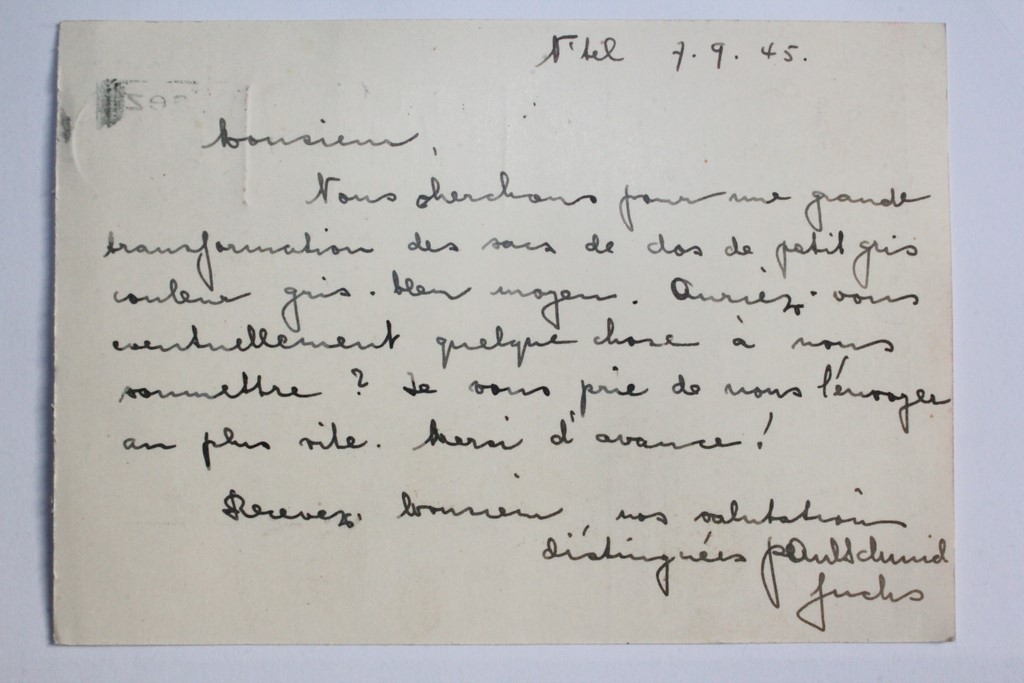 N'tel 7.9.45.
Monsieur,
Nous cherchons pour une grande
transformation des sacs de dos de petit gris
couleur gris-bleu moyen. Auriez-vous
eventuellement quelque chose à nous
soumettre ? Je vous prie de nous l'énvoyer
au plus vite. Merci d'avance !
Recevez, Monsieur, nos salutations
distinguées p Aulschmid
fuchs